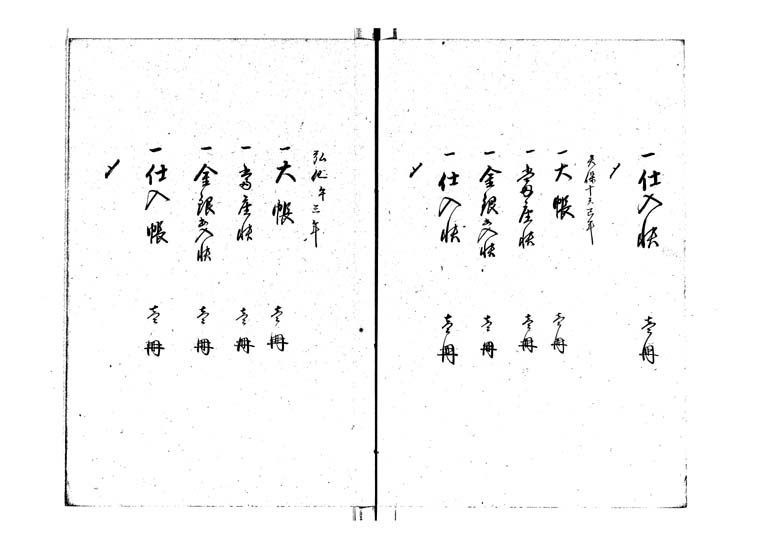 一仕入帳 壱冊
天保十六巳年
一大帳 壱冊
一當座帳 壱冊
一金銀出入帳 壱冊
一仕入帳 壱冊
弘化午三年
一大帳 壱冊
一當座帳 壱冊
一金銀出入帳 壱冊
一仕入帳 壱冊